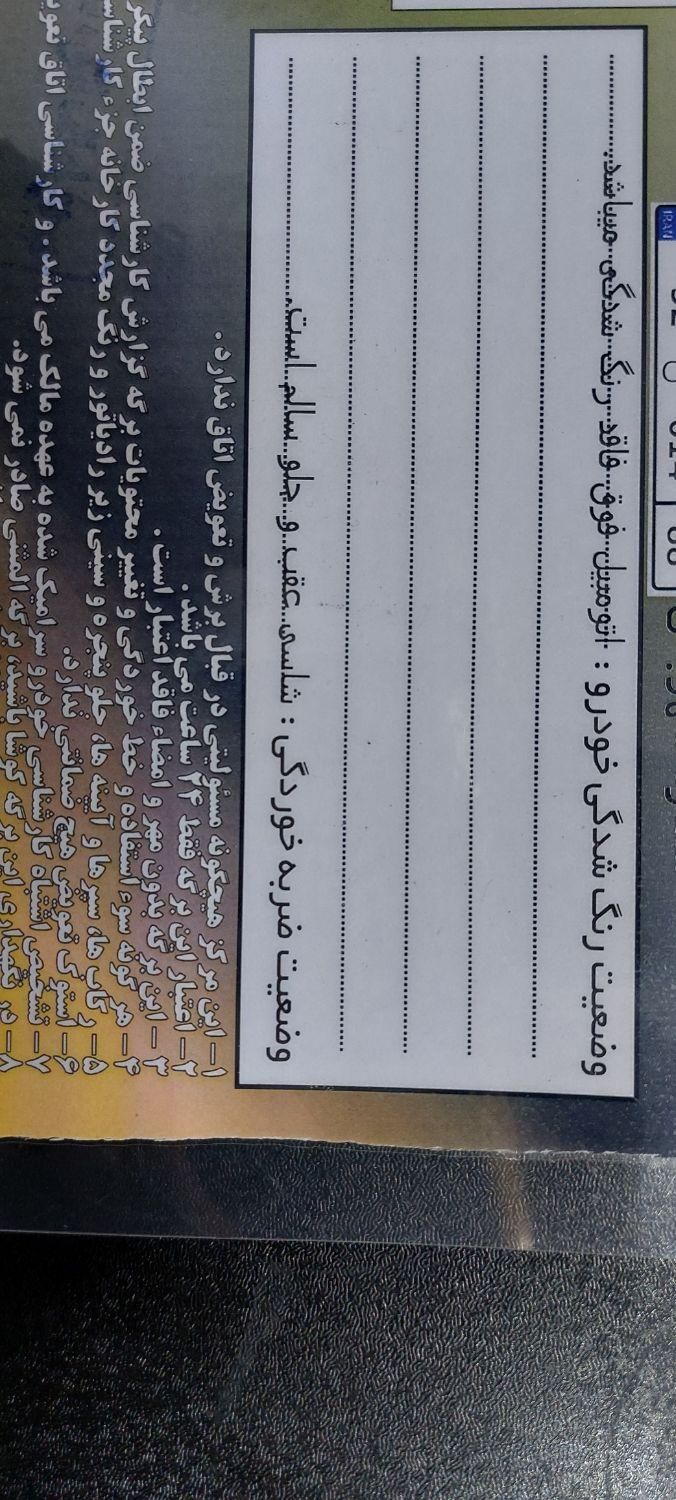 IRAN
وضعیت رنگ شدگی خودرو : اتومبیل فوق فاقد رنگ شدگی میباشد.
وضعیت ضربه خوردگی : شاسی عقب و جلو سالم است.
۱- این مرکز هیچگونه مسئولیتی در قبال برش و تعویض اتاق ندارد .
۲- اعتبار این برگه فقط ۲۴ ساعت می باشد .
۳- این برگه بدون مهر و امضاء فاقد اعتبار است .
۴- هر گونه سوء استفاده و خط خوردگی و تغییر محتویات برگه گزارش کارشناسی ضمن ابطال
۵- رکاب ها، سپر ها و آیینه ها، جلو پنجره و سینی زیر رادیاتور و رنگ مجدد کارخانه جزء
۶- استوک تعویض هیچ ضمانتی ندارد.
۷- تشخیص اشتباه کارشناسی خودرو سرامیک شده به عهده مالک می باشد . و کارشناسی اتاق
۸- در نگهداری این برگه کوشا باشید، برگه المثنی صادر نمی شود.